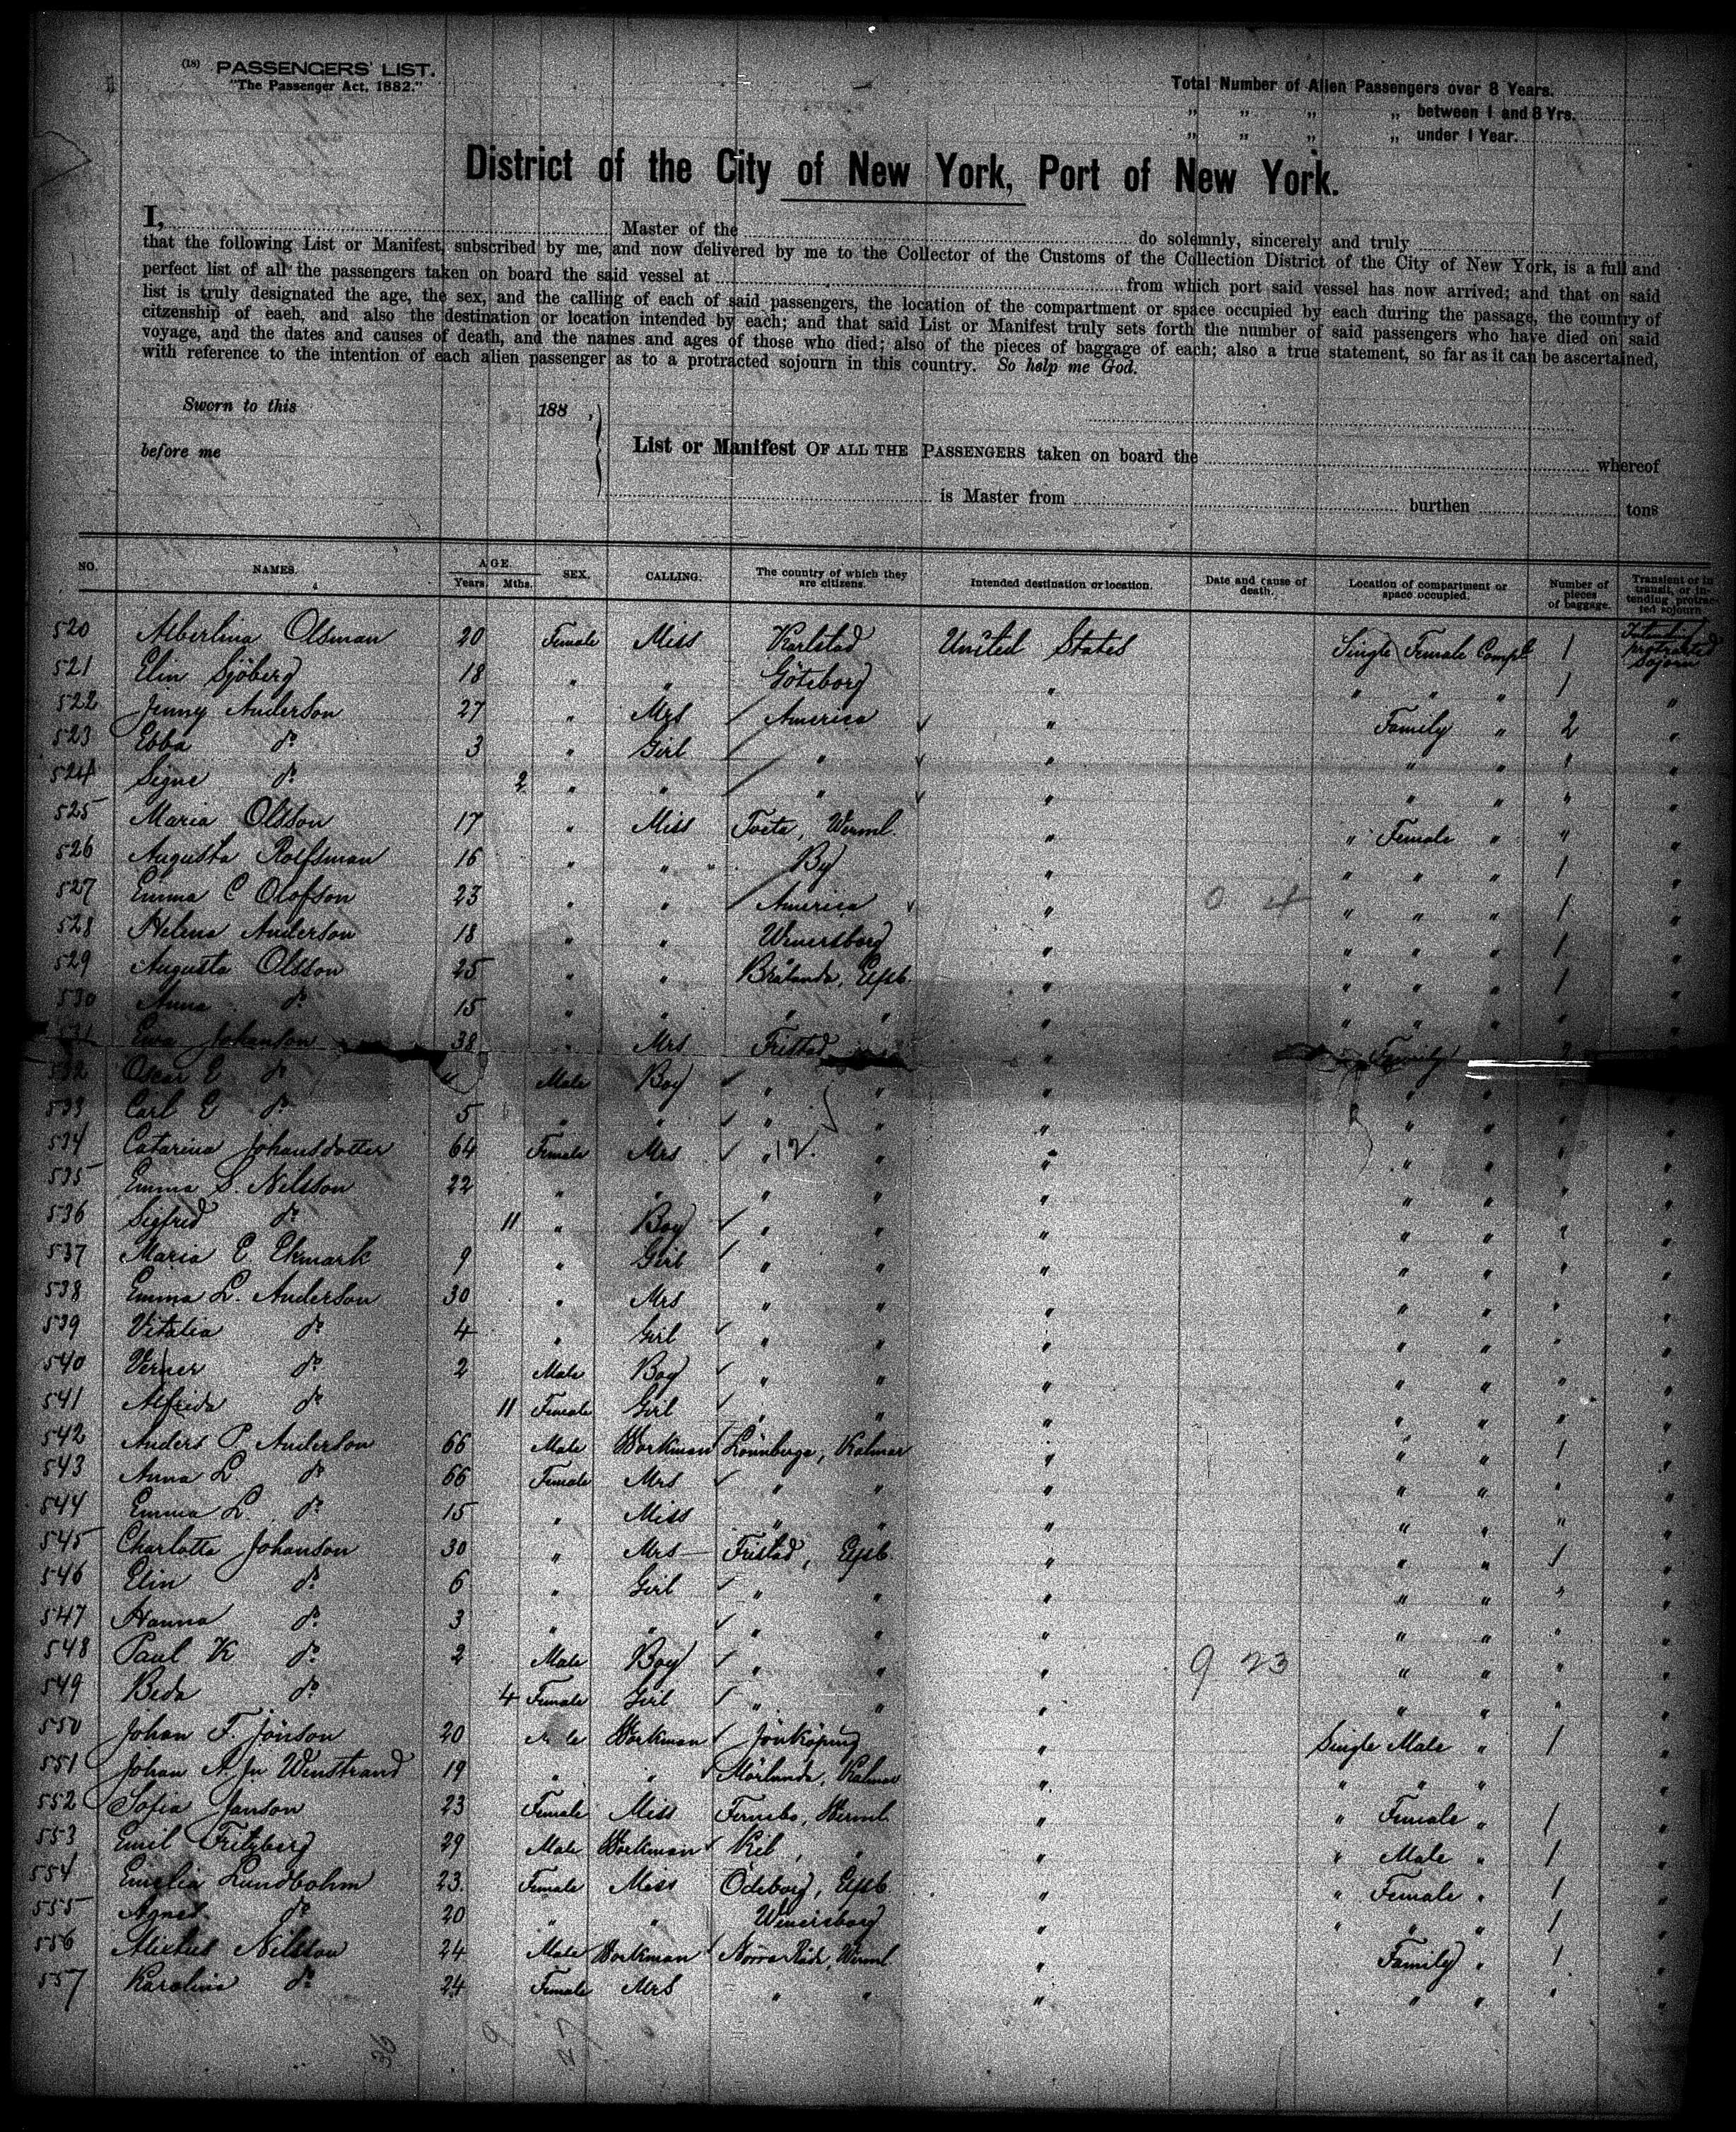 (18) PASSENGERS' LIST.
"The Passenger Act, 1882."
Total Number of Alien Passengers over 8 Years.
„ „ „ „ between 1 and 8 Yrs.
„ „ „ „ under 1 Year.
District of the City of New York, Port of New York.
I, Master of the do solemnly, sincerely and truly
that the following List or Manifest, subscribed by me, and now delivered by me to the Collector of the Customs of the Collection District of the City of New York, is a full and
perfect list of all the passengers taken on board the said vessel at from which port said vessel has now arrived; and that on said
list is truly designated the age, the sex, and the calling of each of said passengers, the location of the compartment or space occupied by each during the passage, the country of
citzenship of eaeh, and also the destination or location intended by each; and that said List or Manifest truly sets forth the number of said passengers who have died on said
voyage, and the dates and causes of death, and the names and ages of those who died; also of the pieces of baggage of each; also a true statement, so far as it can be ascertained,
with reference to the intention of each alien passenger as to a protracted sojourn in this country. So help me God.
Sworn to this 188 ,
before me
List or Manifest OF ALL THE PASSENGERS taken on board the whereof
is Master from burthen tons
NO. NAMES. AGE. Years. Mths. SEX. CALLING. The country of which they are citizens. Intended destination or location. Date and cause of death. Location of compartment or space occupied. Number of pieces of baggage. Transient or in transit, or intending protracted sojourn
520 Alberlina Olsman 20 Female Miss Karlstad United States Single Female Compt 1 Intending protracted Sojorn
521 Elin Sjöberg 18 " " Göteborg " " " " 1 "
522 Jenny Anderson 27 " Mrs America " Family " 2 "
523 Ebba do 3 " Girl " " " " " "
524 Signe do 2 " " " " " " " "
525 Maria Olsson 17 " Miss Werml. " " Female " " "
526 Augusta Rolfsman 16 " " By " " " " 1 "
527 Emma C Olofson 23 " " America " 0 4 " " " 1 "
528 Helena Anderson 18 " " Wenersborg " " " " 1 "
529 Augusta Olsson 25 " " Brålanda, Elfsb. " " " " 1 "
530 Anna do 15 " " " " " " " " " "
531 Ewa Johanson 38 " Mrs Fristad " Family
532 Oscar E do Male Boy " " " " " "
533 Carl E do 5 " " " " " " " "
534 Catarina Johansdotter 64 Female Mrs " 12. " " " " "
535 Emma S. Nilsson 22 " " " " " " " " "
536 Sigfred do 11 " Boy " " " " " " "
537 Maria E. Ekmark 9 " Girl " " " " " " "
538 Emma L. Anderson 30 " Mrs " " " " " " "
539 Vitalia do 4 " Girl " " " " " " "
540 Verner do 2 Male Boy " " " " " " "
541 Alfrida do 11 Female Girl " " " " " " "
542 Anders P. Anderson 66 Male Workman Lönneberga, Kalmar " " " 1 "
543 Anna L do 66 Female Mrs " " " " " " "
544 Emma L. do 15 " Miss " " " " " " "
545 Charlotta Johanson 30 " Mrs Fristad, Elfsb " " " 1 "
546 Elin do 6 " Girl " " " " " " "
547 Hanna do 3 " " " " " " " " "
548 Paul K do 2 Male Boy " " " 9 23 " " " "
549 Beda do 4 Female Girl " " " " " " "
550 Johan F. Jonson 20 Male Workman Jönköping " Single Male " 1 "
551 Johan A. Jn Winstrand 19 " " Mörlunda, Kalmar " " " " "
552 Sofia Janson 23 Female Miss Fernebo, Werml. " " Female " 1 "
553 Emil Fritzberg 29 Male Workman Kil, " " " Male " 1 "
554 Emelia Lundbohm 23. Female Miss Ödeborg, Elfsb. " " Female " 1 "
555 Agnes do 20 " " Wenersborg " " " " 1 "
556 Nilsson 24 Male Workman Norra Råda, Werml " Family " 1 "
557 Karolina do 24 Female Mrs " " " " " " "
36 9 27